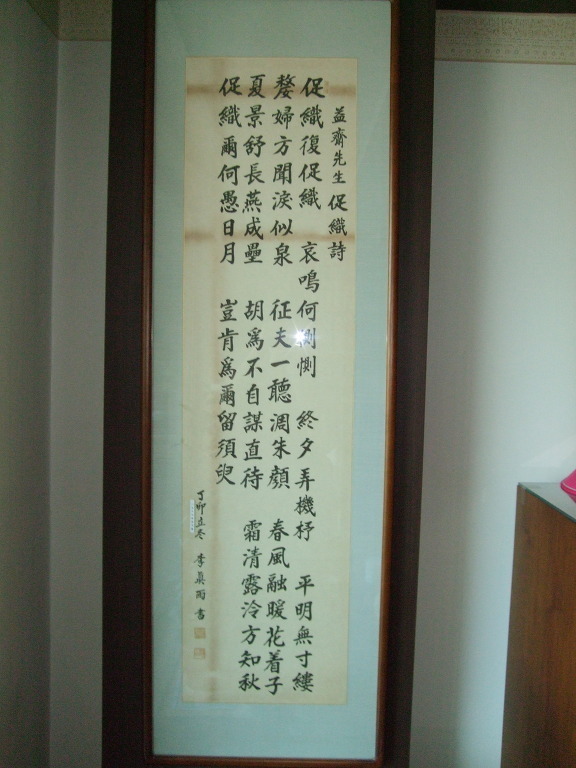 益齋先生 促織詩
促織復促織 哀鳴何惻惻 終夕弄機杼 平明無寸縷
嫠婦方聞淚似泉 征夫一聽凋朱顏 春風融暖花着子
夏景舒長燕成壘 胡爲不自謀直待 霜清露泠方知秋
促織爾何愚日月 豈肯爲爾留須臾
丁卯立冬 李 書